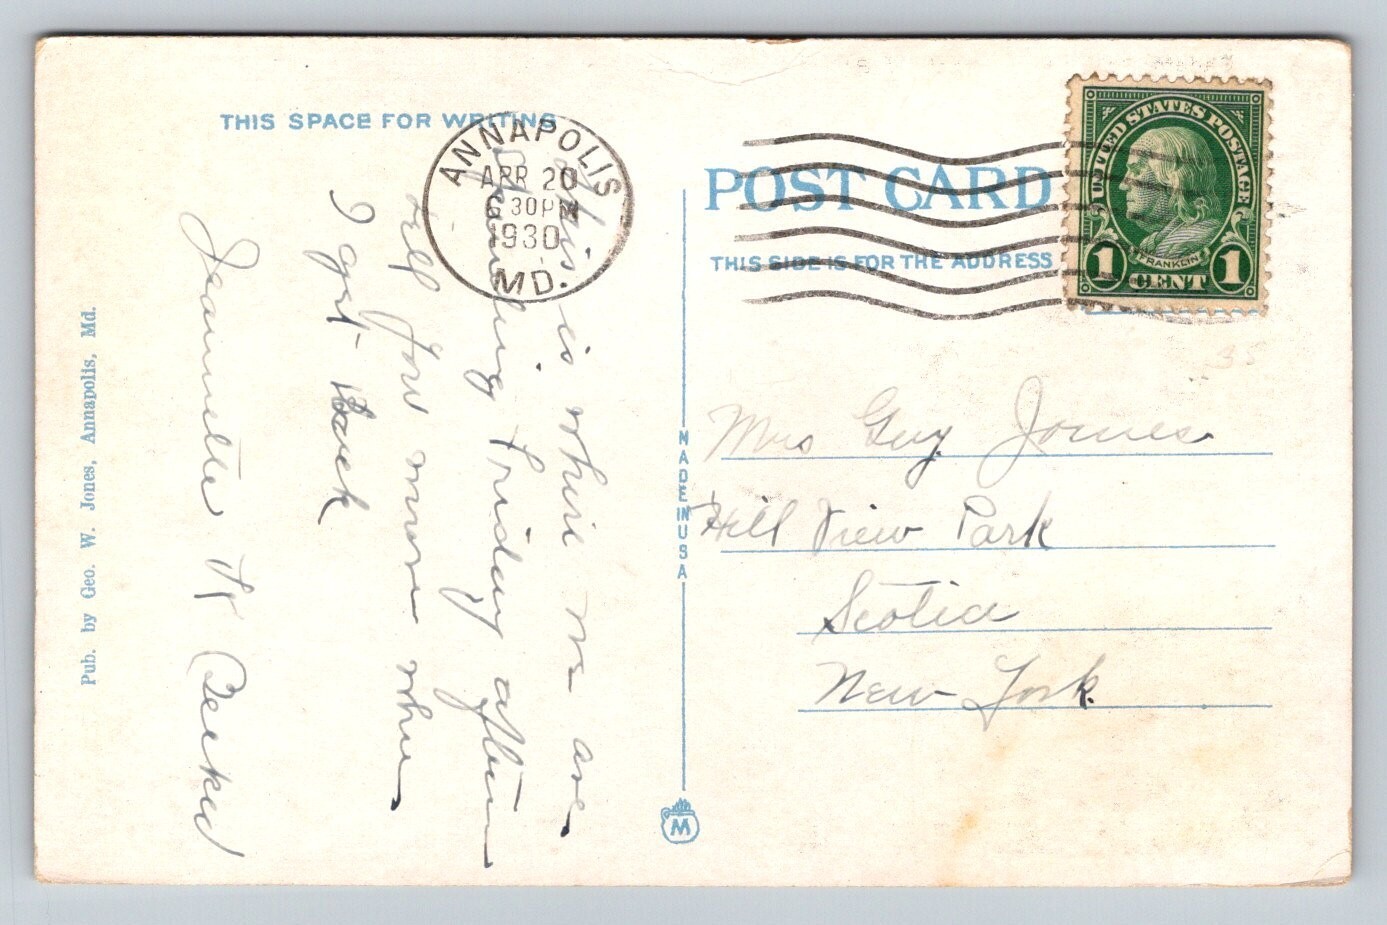 THIS SPACE FOR WRITING
ANNAPOLIS
APR 20
6 30PM
1930
MD.
This is where we are
spending Friday after
tell you more when
I get back
Jeannette W Becker
Pub. by Geo. W. Jones, Annapolis, Md.
MADE IN USA
M
POST CARD
THIS SIDE IS FOR THE ADDRESS
UNITED STATES POSTAGE
FRANKLIN
1 CENT 1
Mrs Guy Jones
Hill View Park
Scotia
New York
35